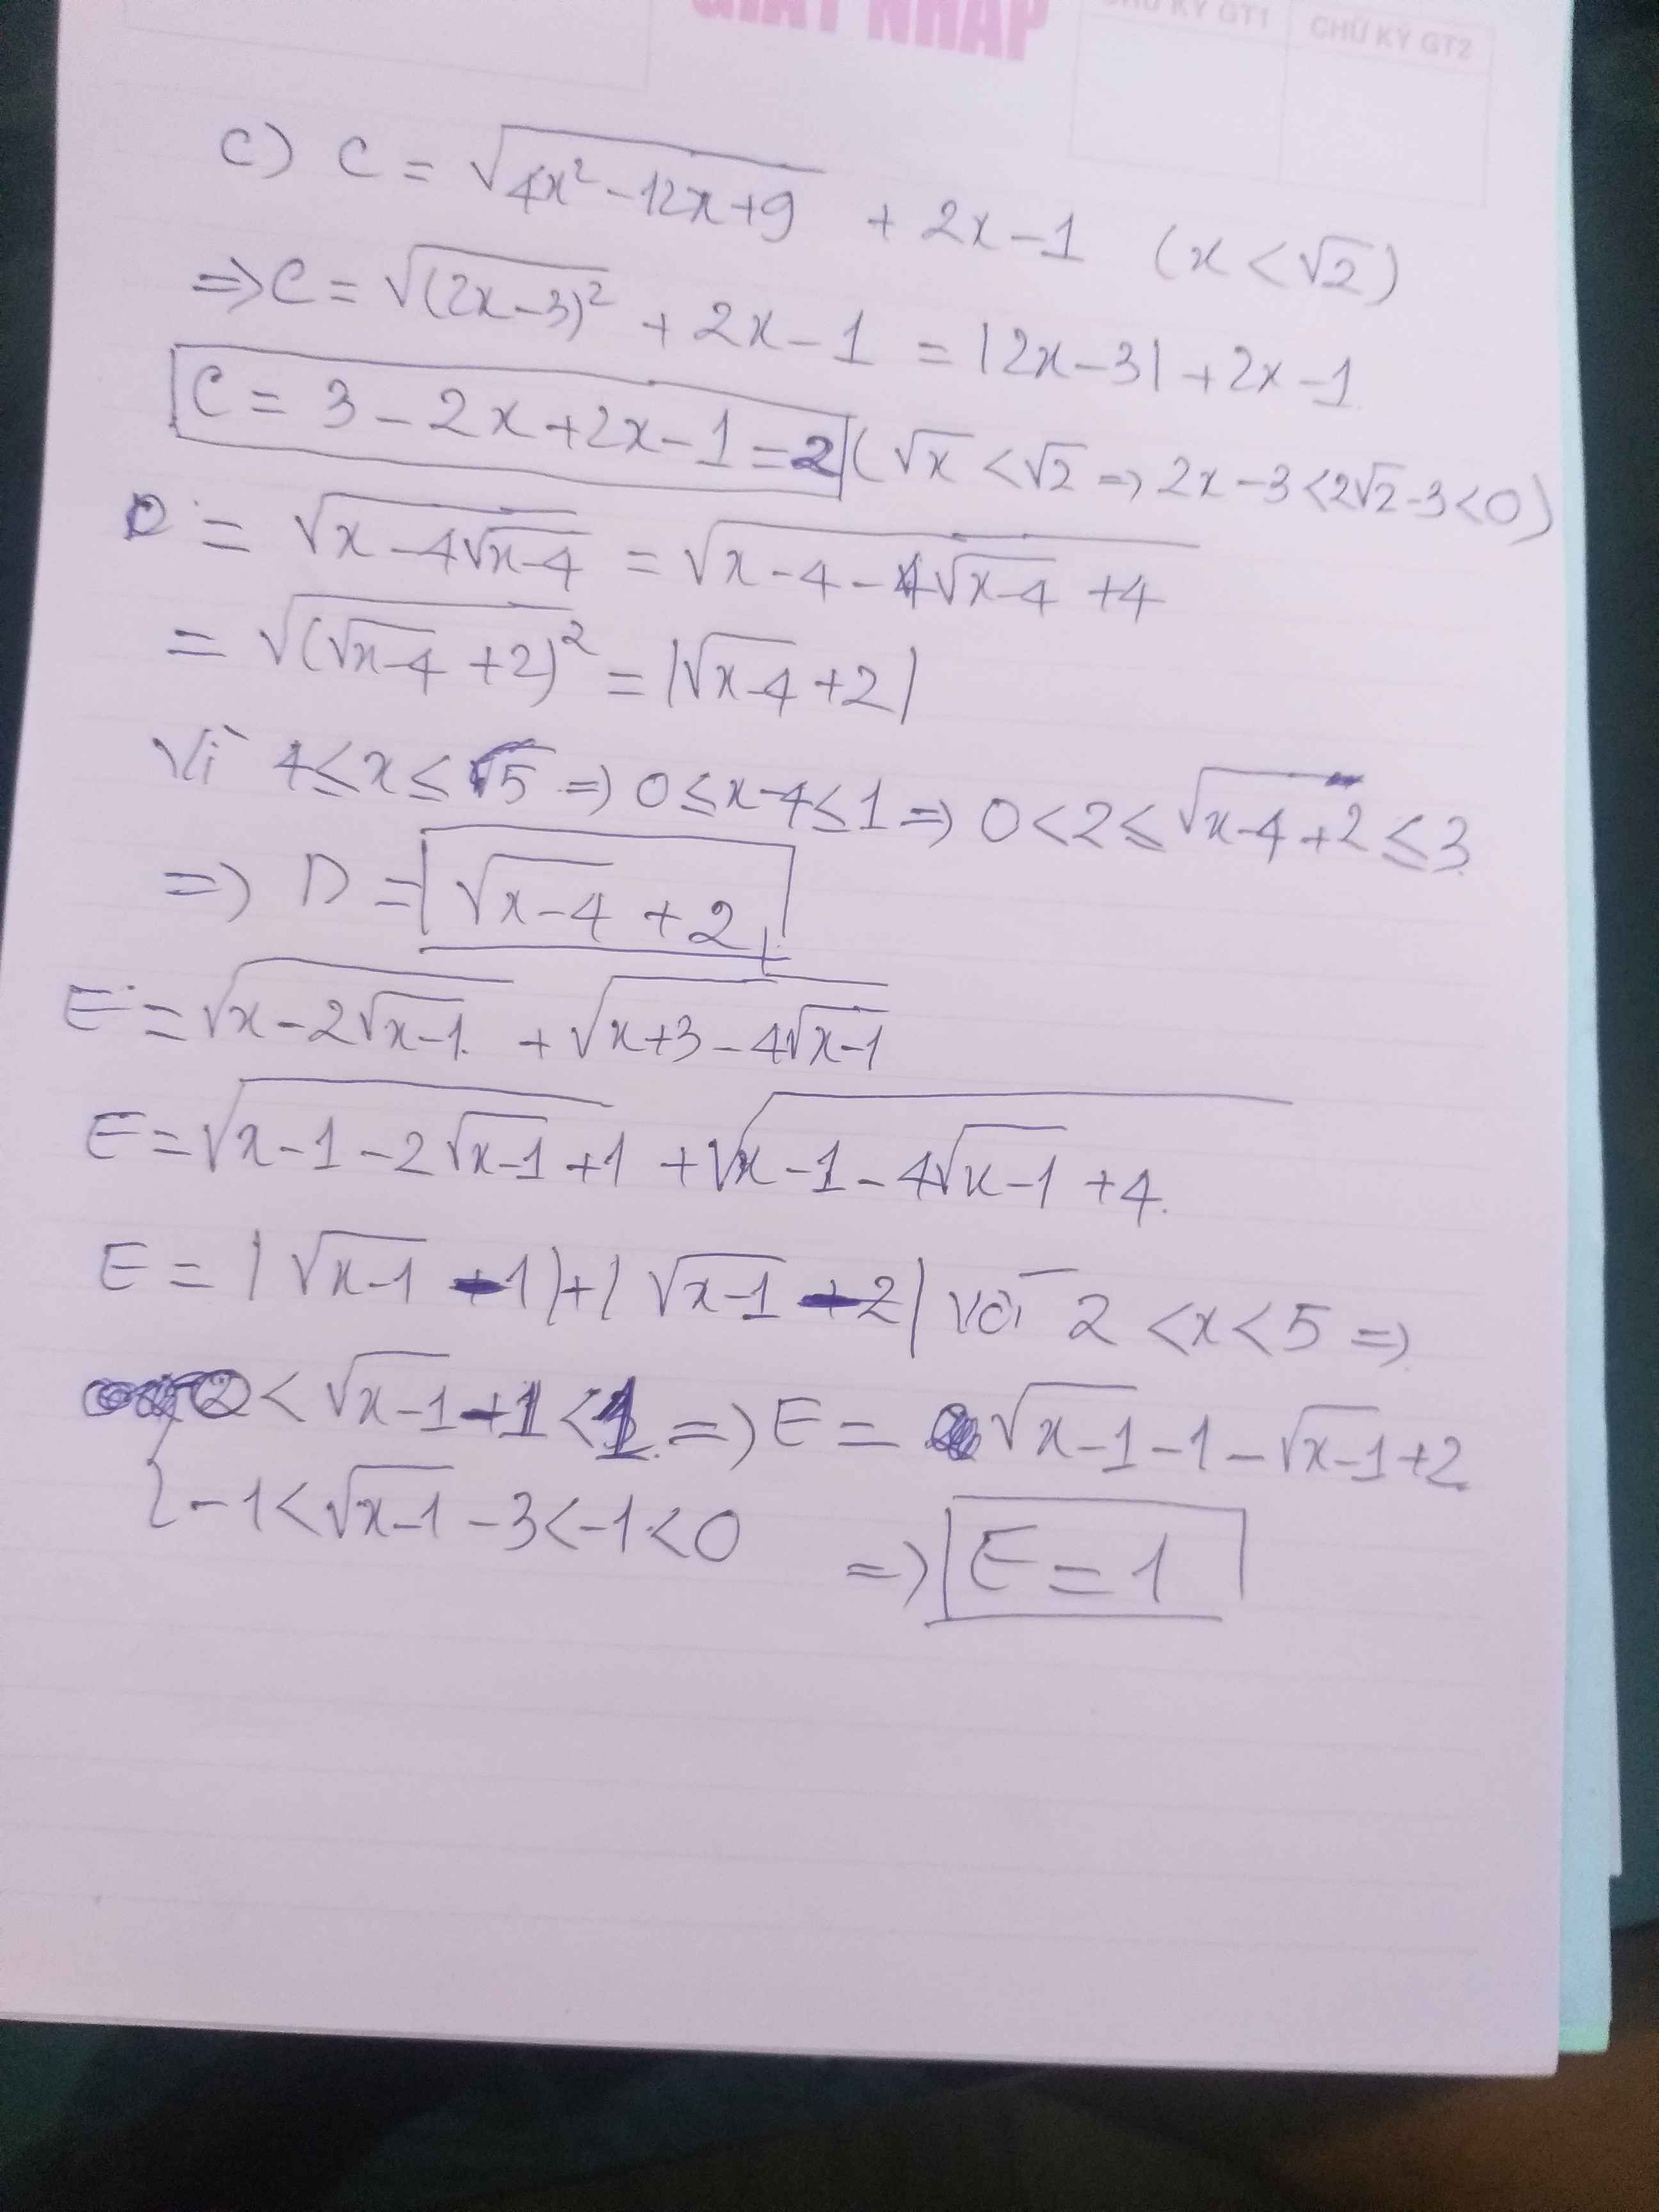 GIẤY NHÁP
CHỮ KÝ GT1 CHỮ KÝ GT2
c) C = √(4x²-12x+9) + 2x-1 (x<√2)
=> C = √((2x-3)²) + 2x-1 = |2x-3|+2x-1
C = 3-2x+2x-1=2 (√x<√2 => 2x-3<2√2-3<0)
D = √(x-4√(x-4)) = √(x-4-4√(x-4)+4)
= √((√(x-4)+2)²) = |√(x-4)+2|
Vì 4≤x≤√5 => 0≤x-4≤1 => 0<2≤√(x-4+2)≤3
=> D = √(x-4)+2
E = √(x-2√(x-1)) + √(x+3-4√(x-1))
E = √(x-1-2√(x-1)+1) + √(x-1-4√(x-1)+4)
E = |√(x-1)-1|+|√(x-1)-2| với 2<x<5 =>
<√(x-1)-1<1 => E = √(x-1)-1-√(x-1)+2
{-1<√(x-1)-3<-1<0
=> E = 1